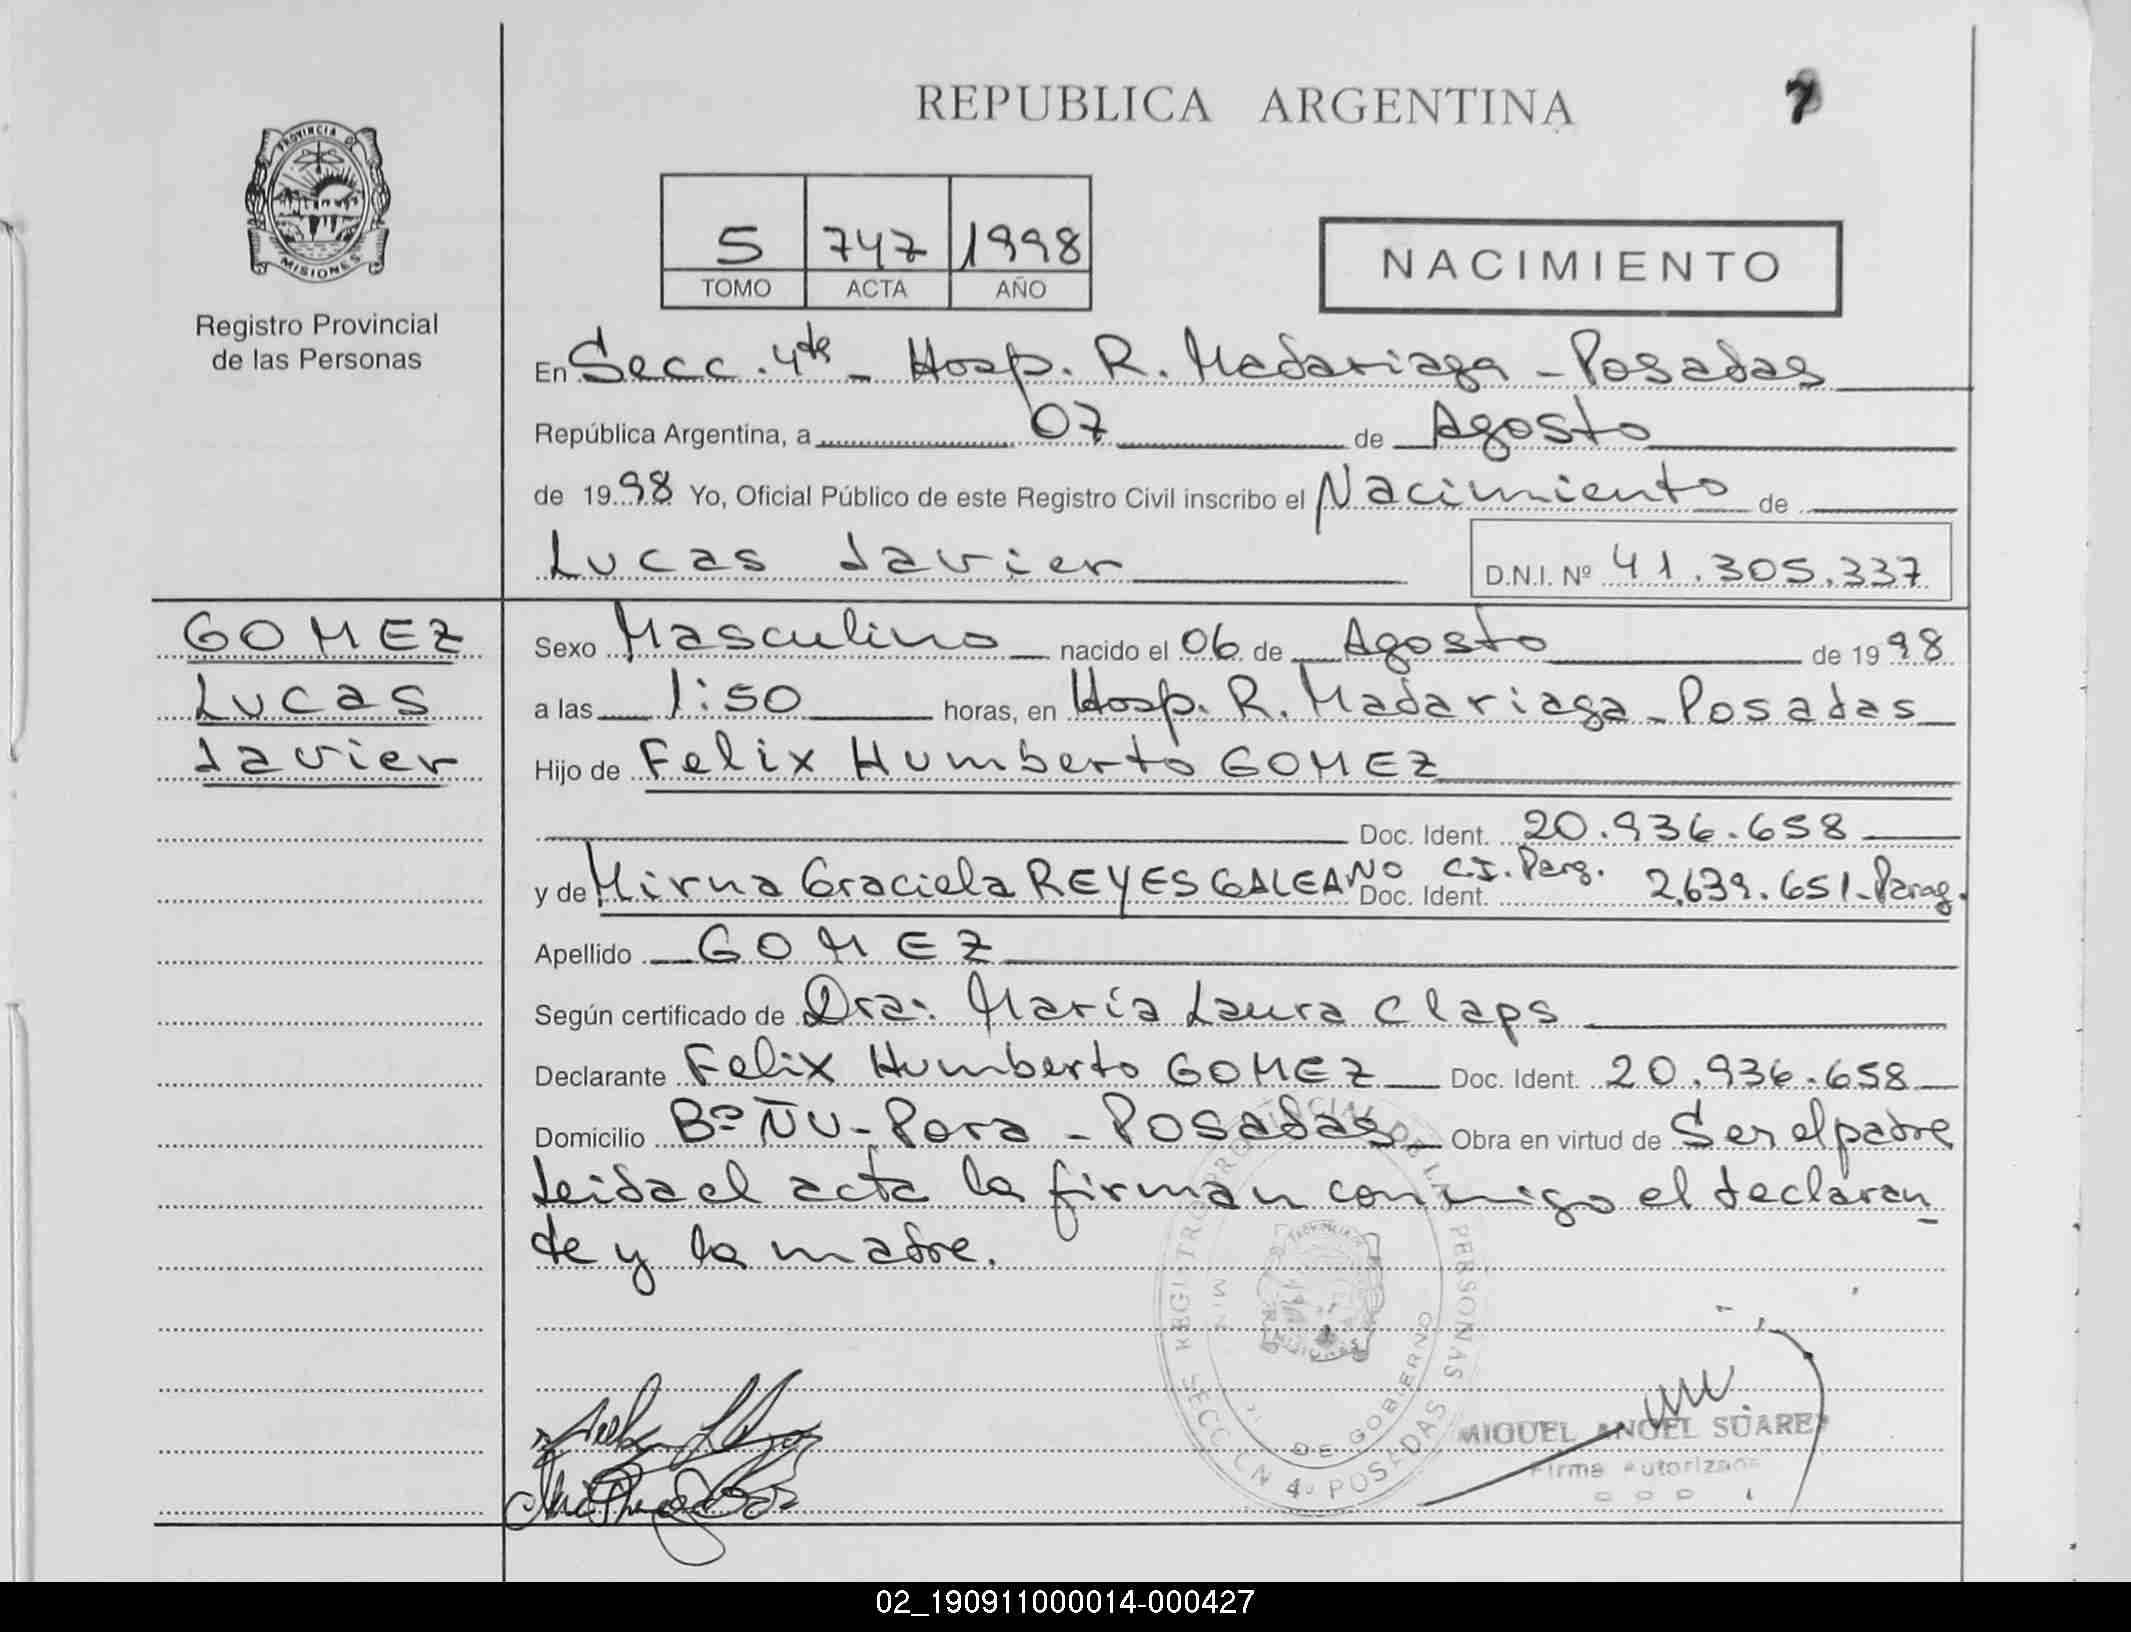 REPUBLICA ARGENTINA
7
PROVINCIA DE
MISIONES
Registro Provincial
de las Personas
5 747 1998
TOMO ACTA AÑO
NACIMIENTO
En Secc. 4ta - Hosp. R. Madariaga - Posadas
República Argentina, a 07 de Agosto
de 1998 Yo, Oficial Público de este Registro Civil inscribo el Nacimiento de
Lucas Javier D.N.I. Nº 41.305.337
GOMEZ
Lucas
Javier
Sexo Masculino nacido el 06 de Agosto de 1998
a las 1:50 horas, en Hosp. R. Madariaga - Posadas
Hijo de Felix Humberto GOMEZ
Doc. Ident. 20.936.658
y de Mirna Graciela REYES GALEANO C.I. Parg. Doc. Ident. 2.639.651 - Parag.
Apellido GOMEZ
Según certificado de Dra. María Laura Claps
Declarante Felix Humberto GOMEZ Doc. Ident. 20.936.658
Domicilio Bº ÑU - Pora - Posadas Obra en virtud de Ser el padre
Leida el acta la firman conmigo el declaran
te y la madre.
REGISTRO PROVINCIAL DE LAS PERSONAS
MISIONES
DE GOBIERNO
SECCIÓN 4ª POSADAS
MIGUEL ANGEL SUAREZ
Firma Autorizada
02_190911000014-000427